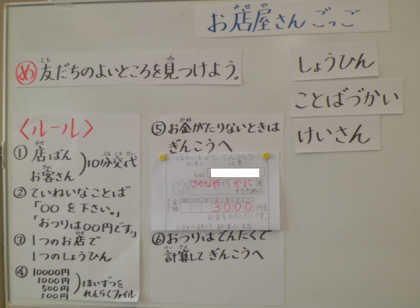 お店屋さんごっこ
め 友だちのよいところを見つけよう。
しょうひん
ことばづかい
けいさん
〈ルール〉
① 店ばん
お客さん
10分交代
② ていねいなことば
「〇〇を下さい。」
「おつりは〇〇円です。」
③ 1つのお店で
1つのしょうひん
④ 10000円
1000円
500円
100円
はいずつを
れんらくファイル
⑤ お金がたりないときは
ぎんこうへ
さかなや で かに を
3000 円
⑥ おつりはでんたくで
計算してぎんこうへ